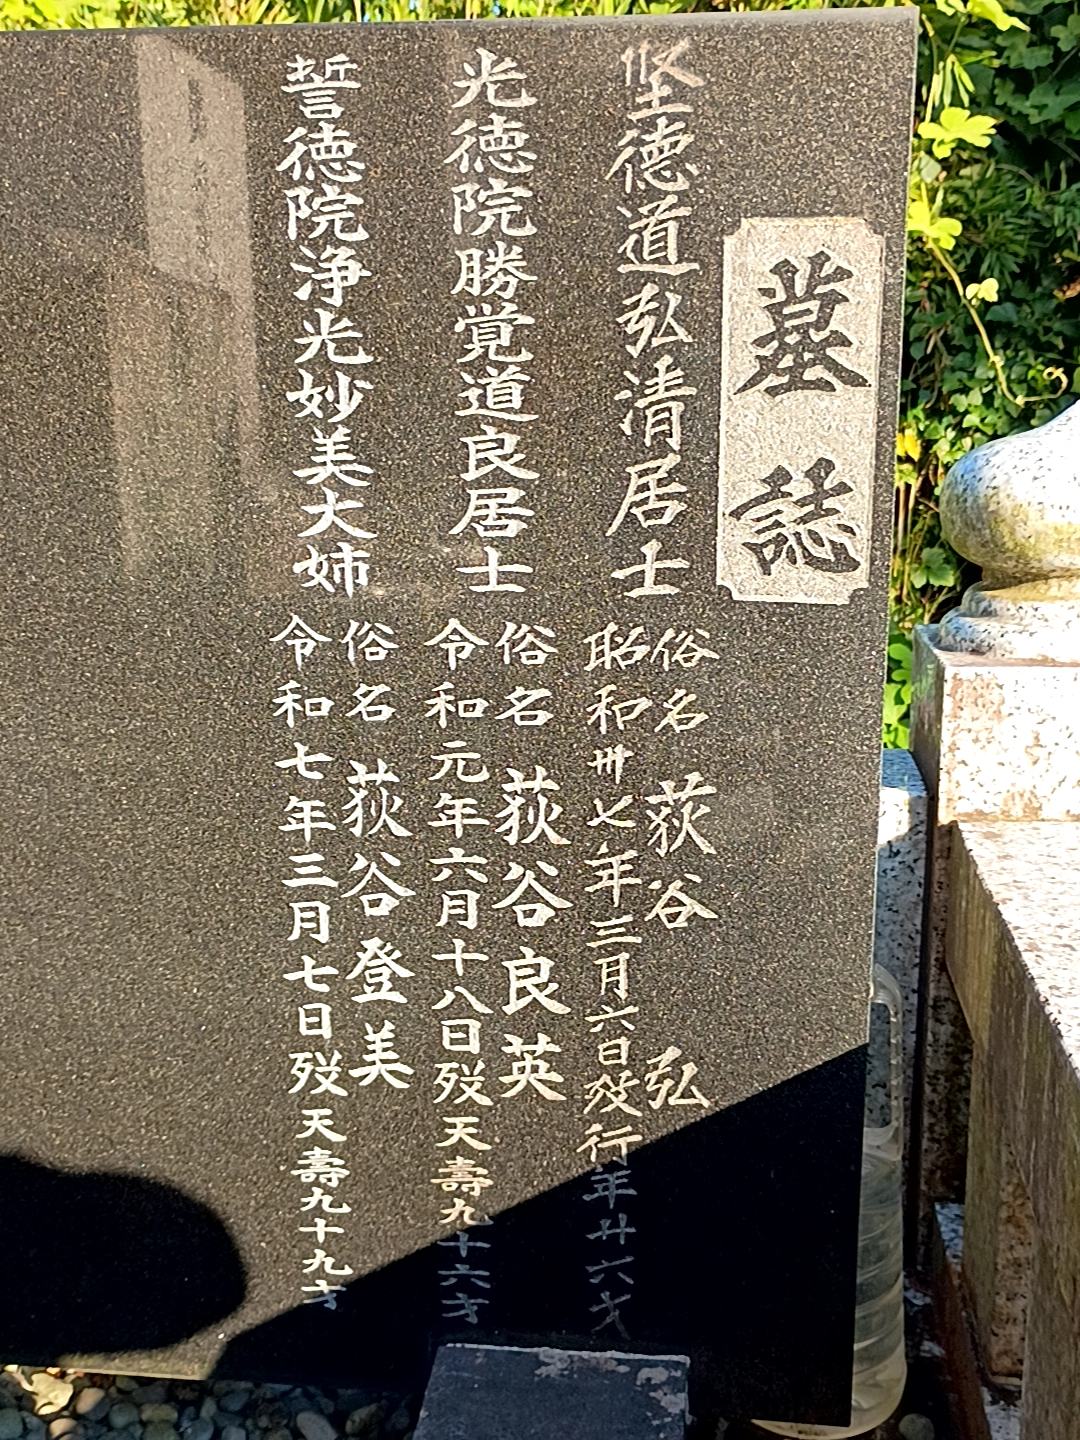 墓誌
堅徳道弘清居士
俗名 荻谷 弘
昭和卅七年三月六日歿 行年廿六才
光徳院勝覚道良居士
俗名 荻谷良英
令和元年六月十八日歿 天壽九十六才
誓徳院浄光妙美大姉
俗名 荻谷登美
令和七年三月七日歿 天壽九十九才